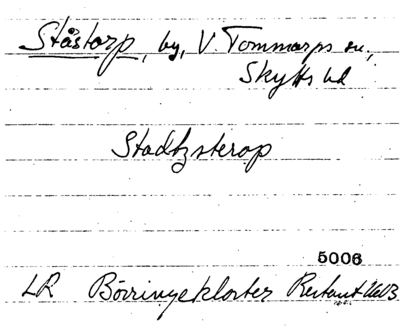 Ståstorp, by, V. Tommarps sn.,
Skytts hd
Stadtzsterop
5006
LR Börringekloster Restant-